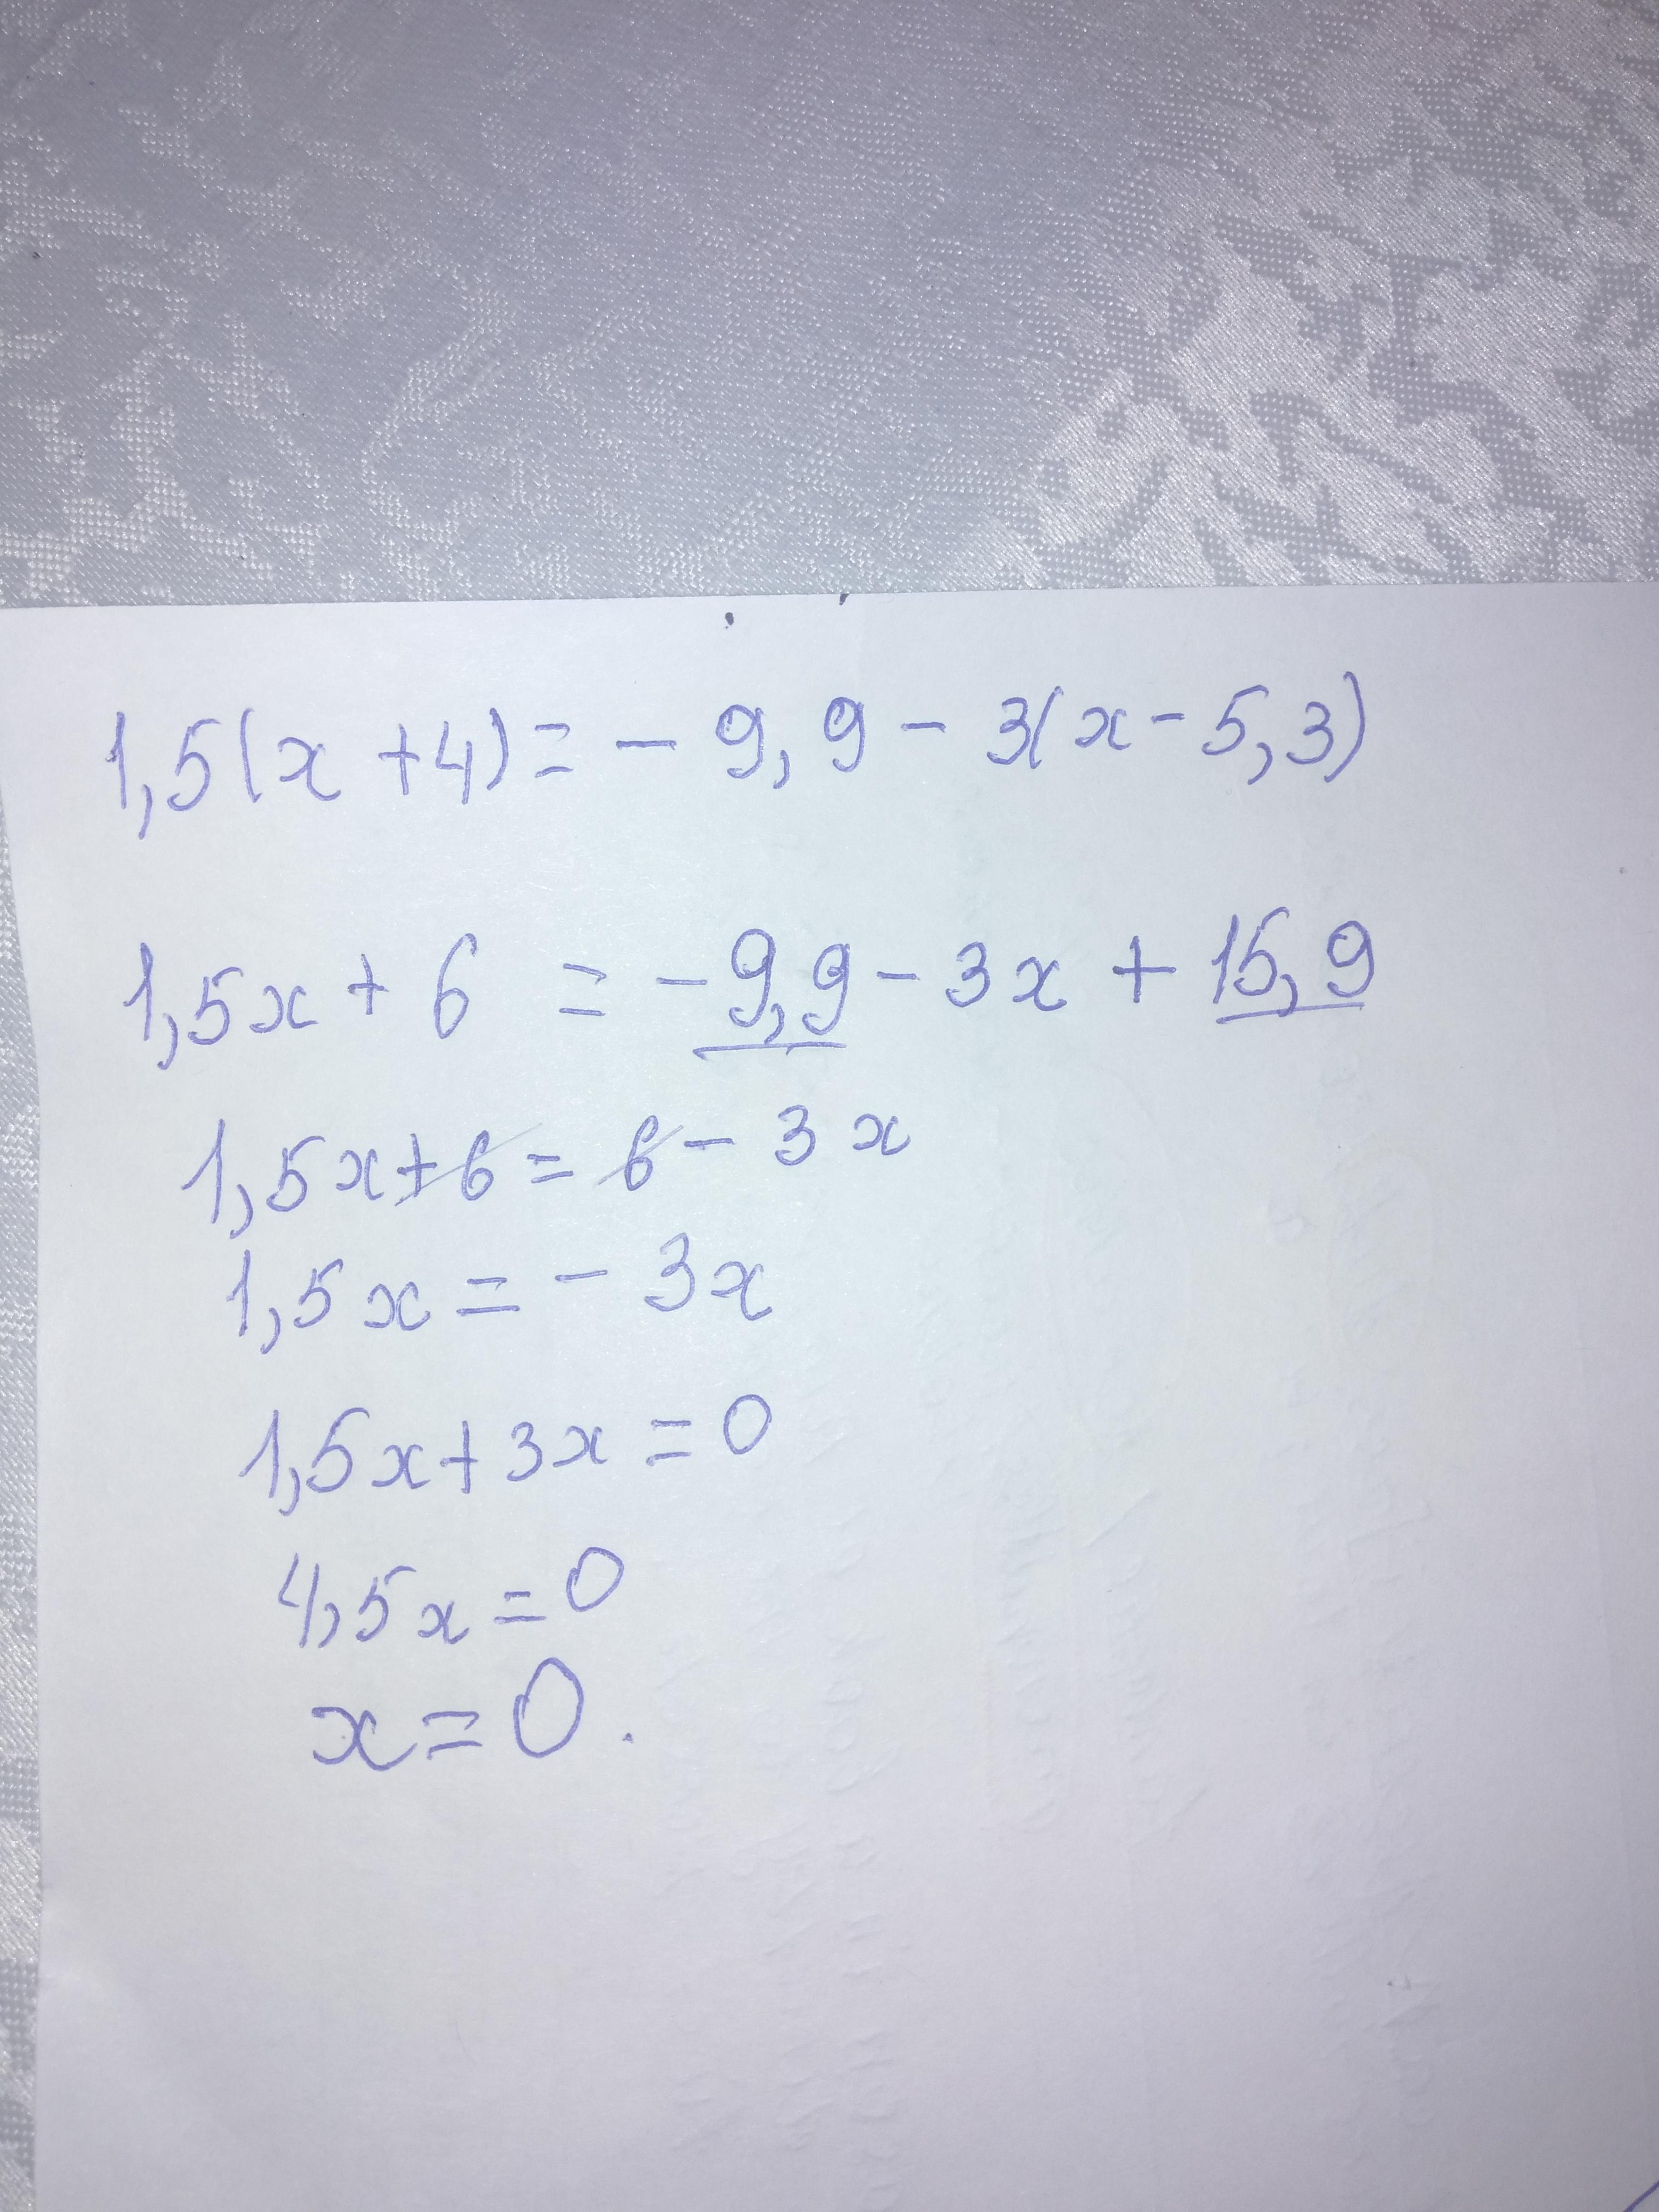 1,5(x+4)=-9,9-3(x-5,3)
1,5x+6=-9,9-3x+15,9
1,5x+6=6-3x
1,5x=-3x
1,5x+3x=0
4,5x=0
x=0.